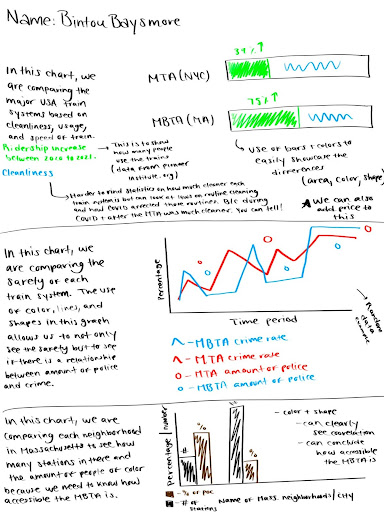 Name: Bintou Baysmore
39% ↑
In this chart, we
are comparing the
major USA train
systems based on
cleanliness, usage,
and speed of train.
Ridership increase
between 2020 to 2021.
Cleanliness
MTA (NYC)
75% ↑
MBTA (MA)
This is to show
how many people
use the trains
(data from pioneer
institute.org)
use of bars + colors to
easily showcase the
differences
(area, color, shape)
★ We can also
add price to
this
Harder to find statistics on how much cleaner each
train system is but can look at laws on routine cleaning
and how COVID affected those routines. B/c during
COVID + after the MTA was much cleaner. You can tell!
In this chart, we
are comparing the
safety of each
train system. The use
of color, lines, and
shapes in this graph
allows us to not only
see the safety but to see
if there is a relationship
between amount of police
and crime.
Percentage
Time period
Random
data
^ - MBTA crime rate
^ - MTA crime rate
o - MTA amount of police
o - MBTA amount of police
In this chart, we are
comparing each neighborhood
in Massachusetts to see how
many stations in there and
the amount of people of color
because we need to know how
accessible the MBTA is.
Percentage/number
#
%
%
- color + shape
- can clearly
see correlation
- can conclude
how accessible
the MBTA is
- % of POC
- # of
stations
Name of Mass. neighborhoods/city